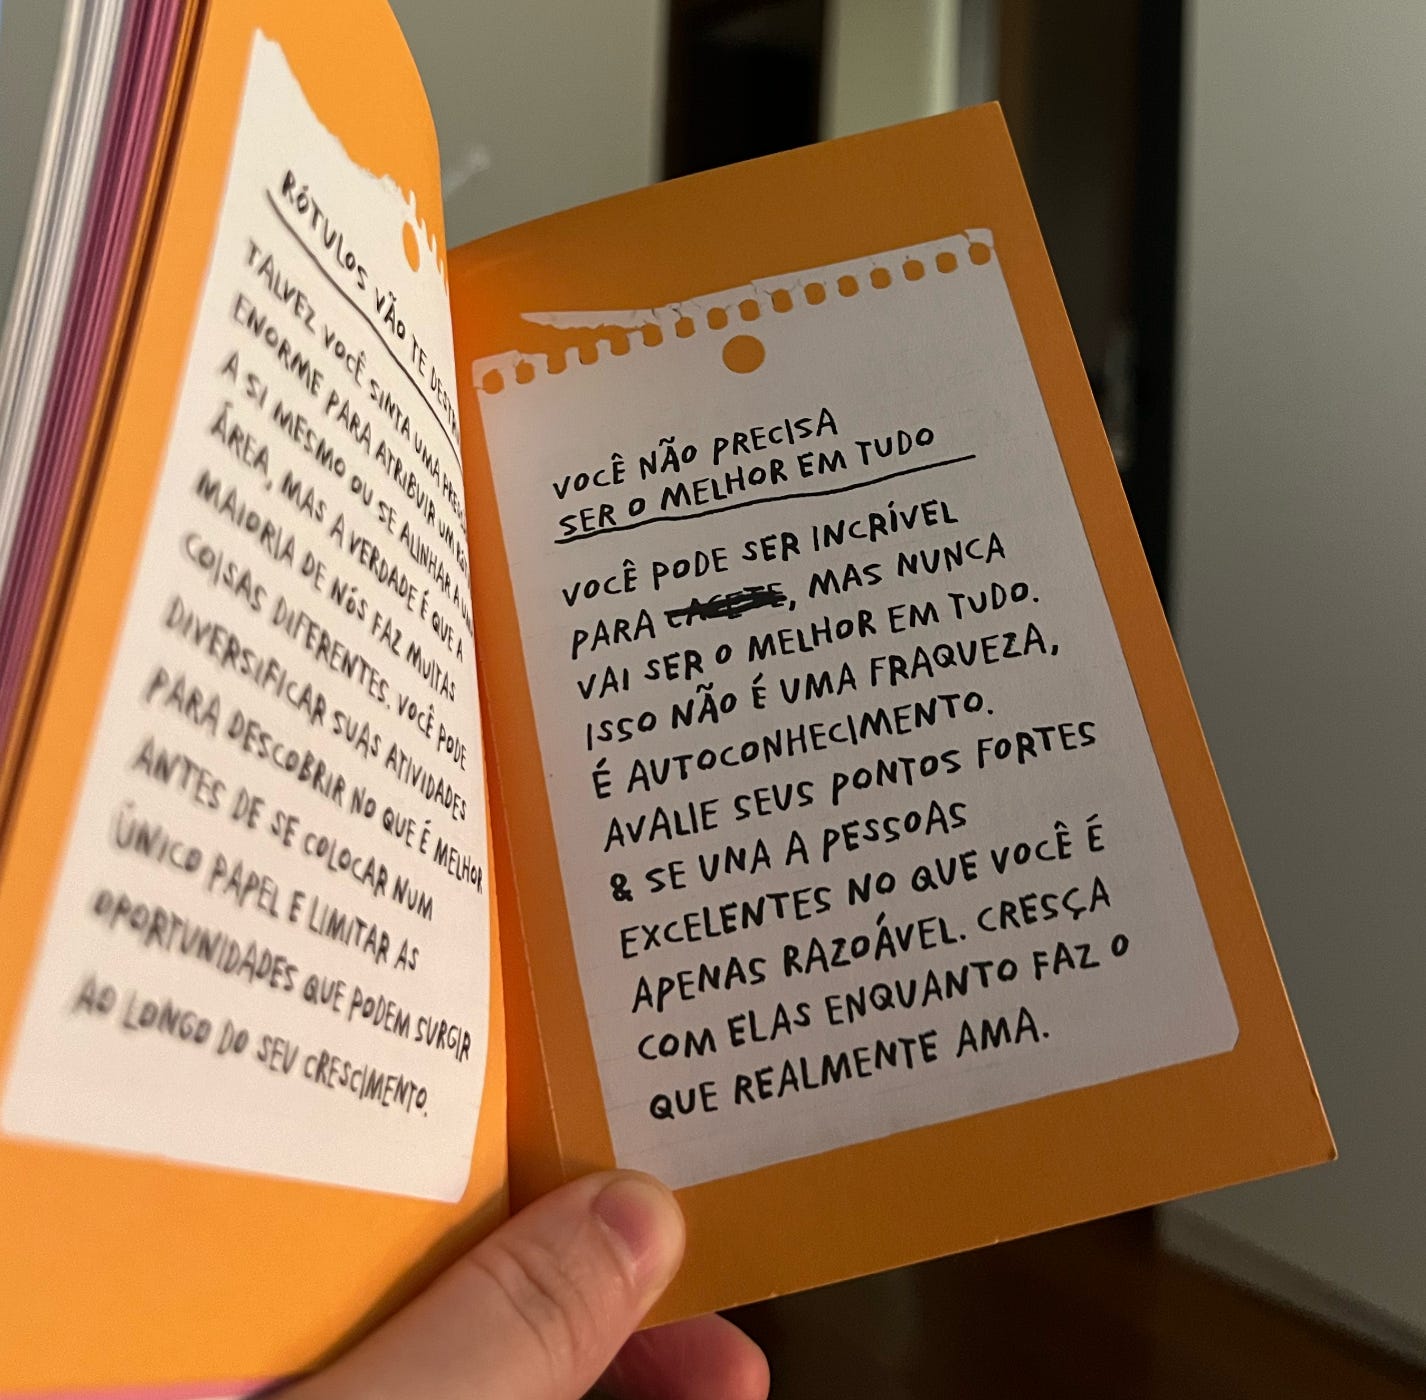 RÓTULOS VÃO TE
TALVEZ VOCÊ SINTA UMA
ENORME PARA ATRIBUIR UM
A SI MESMO OU SE ALINHAR A
ÁREA, MAS A VERDADE É QUE A
MAIORIA DE NÓS FAZ MUITAS
COISAS DIFERENTES. VOCÊ PODE
DIVERSIFICAR SUAS ATIVIDADES
PARA DESCOBRIR NO QUE É MELHOR
ANTES DE SE COLOCAR NUM
ÚNICO PAPEL E LIMITAR AS
OPORTUNIDADES QUE PODEM SURGIR
AO LONGO DO SEU CRESCIMENTO.
VOCÊ NÃO PRECISA
SER O MELHOR EM TUDO
VOCÊ PODE SER INCRÍVEL
PARA CACETE, MAS NUNCA
VAI SER O MELHOR EM TUDO.
ISSO NÃO É UMA FRAQUEZA,
É AUTOCONHECIMENTO.
AVALIE SEUS PONTOS FORTES
& SE UNA A PESSOAS
EXCELENTES NO QUE VOCÊ É
APENAS RAZOÁVEL. CRESÇA
COM ELAS ENQUANTO FAZ O
QUE REALMENTE AMA.